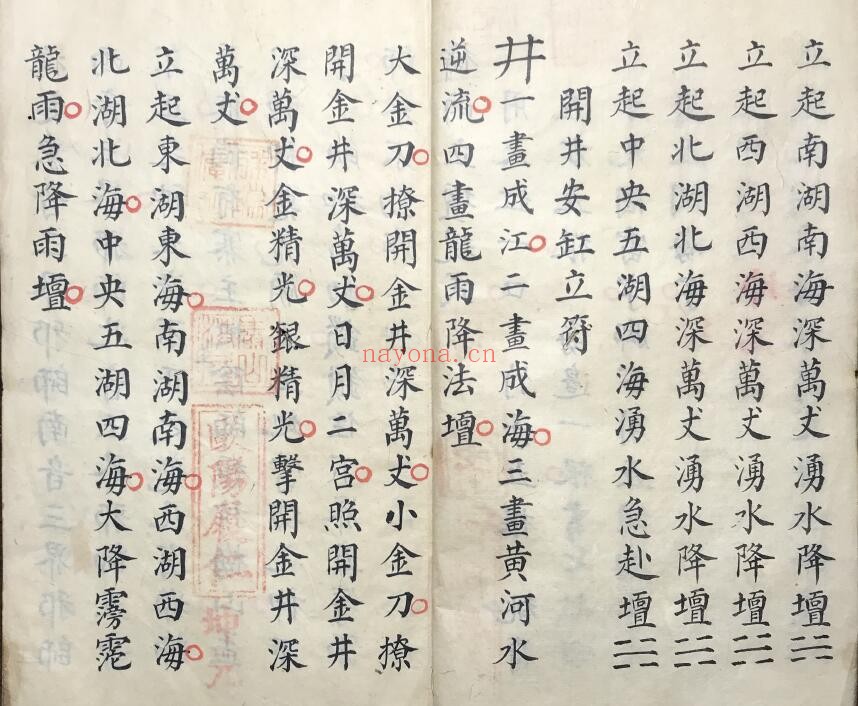 立起南湖南海深萬丈湧水降壇
立起西湖西海深萬丈湧水降壇
立起北湖北海深萬丈湧水降壇
立起中央五湖四海湧水急赴壇
開井安缸立符
井一畫成江二畫成海三畫黄河水
逆流四畫龍雨降法壇
大金刀撩開金井深萬丈小金刀撩
開金井深萬丈日月二宮照開金井
深萬丈金精光銀精光擊開金井深
萬丈
立起東湖東海南湖南海西湖西海
北湖北海中央五湖四海大降雱
龍雨急降雨壇
nayona.cn